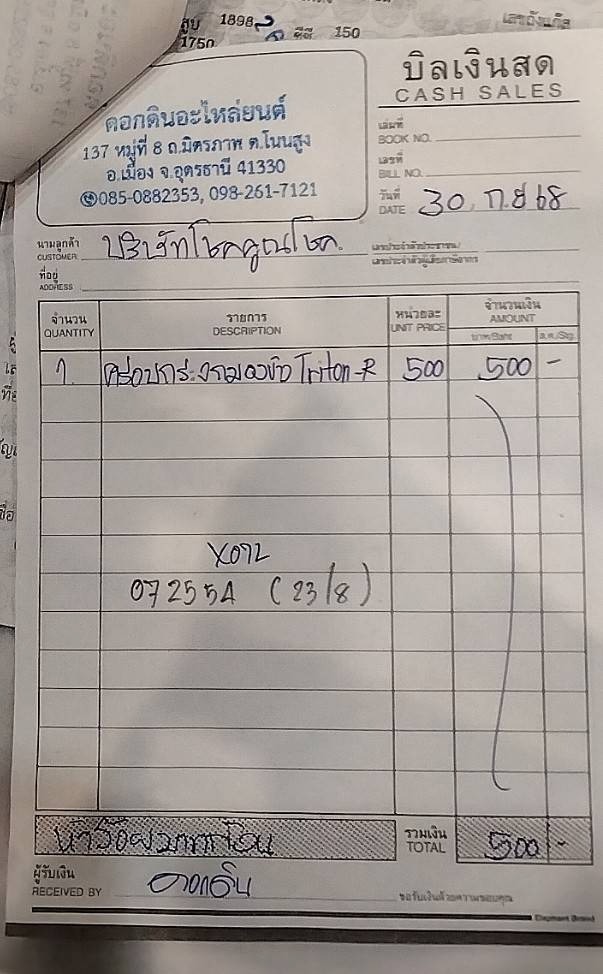 สูบ 1898
ซีซี 150
1750
บิลเงินสด
CASH SALES
ดอกดินอะไหล่ยนต์
137 หมู่ที่ 8 ถ.มิตรภาพ ต.โนนสูง
อ.เมือง จ.อุดรธานี 41330
085-0882353, 098-261-7121
เล่มที่
BOOK NO.
เลขที่
BILL NO.
วันที่
DATE 30 ก.ย 68
นามลูกค้า
CUSTOMER บริษัทโชคคูณโชค.
เลขประจำตัวประชาชน/
เลขประจำตัวผู้เสียภาษีอากร
ที่อยู่
ADDRESS
จำนวน รายการ หน่วยละ จำนวนเงิน
QUANTITY DESCRIPTION UNIT PRICE AMOUNT
บาท/Baht ส.ต./Stg.
1. ครอบกระจกมองข้าง Triton-R 500 500 -
07255A (23/8)
ห้าร้อยบาทถ้วน
รวมเงิน
TOTAL 500 -
ผู้รับเงิน
RECEIVED BY ดอกดิน
ขอรับเงินด้วยความขอบคุณ
Elephant Brand